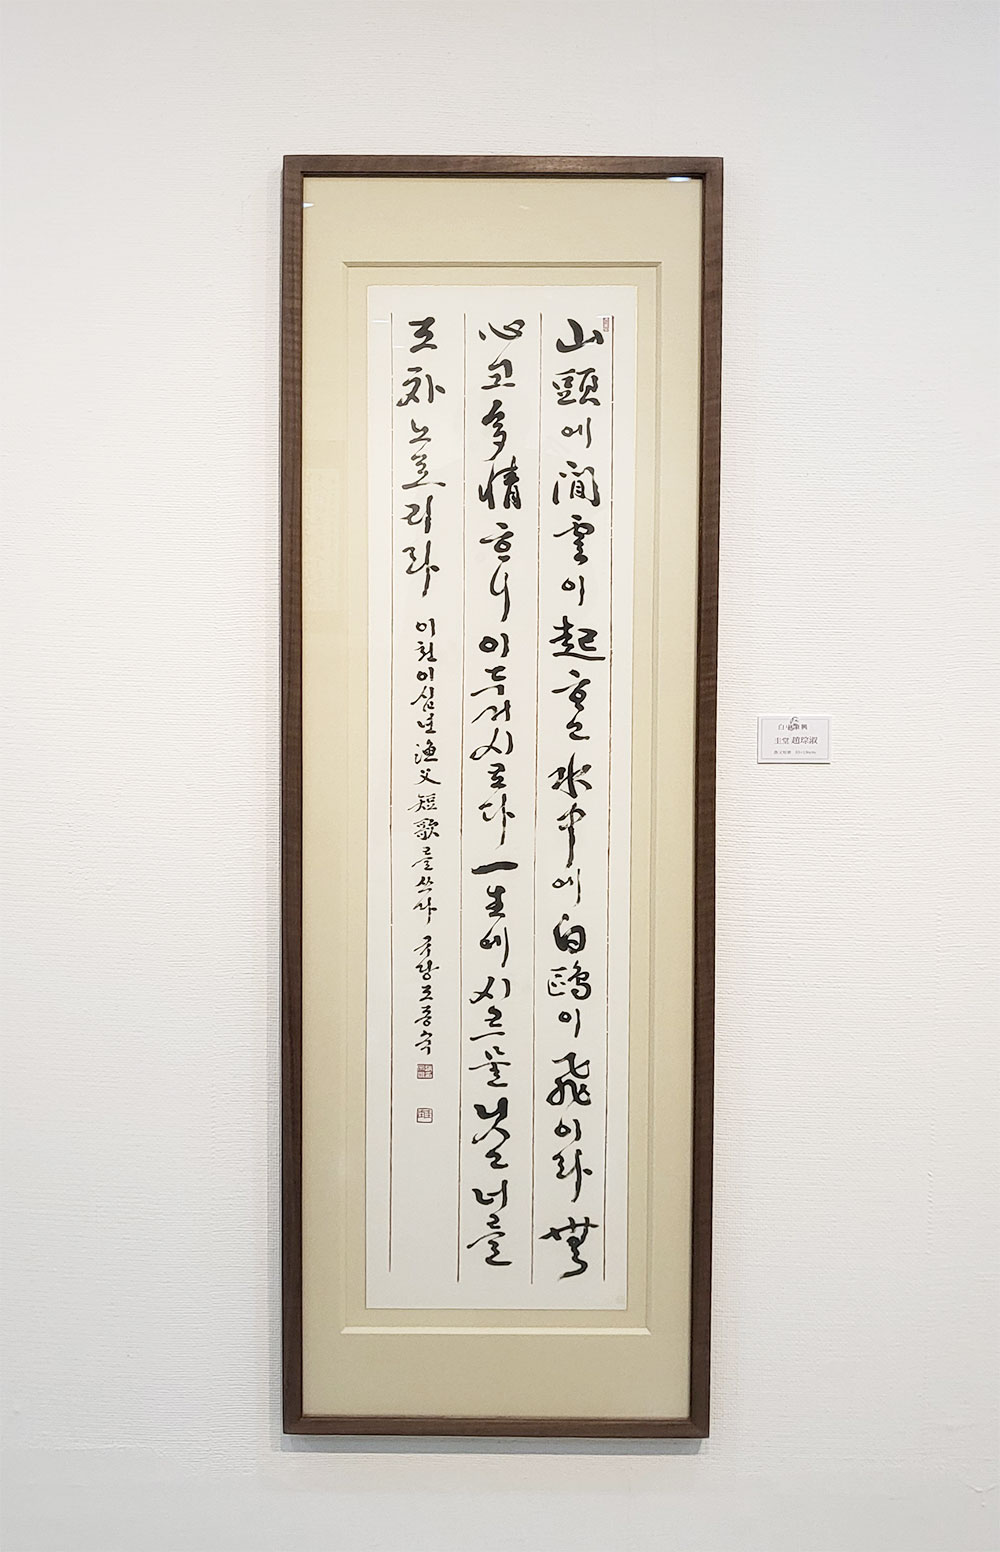 山頭에閒雲이起흐고水中에白鷗이飛이라無
心코多情흐니이두거시로다一生에시르믈닛고너를
조차노로리라
이천이십년漁父短歌를쓰다 규당조종숙
圭堂 趙琮淑